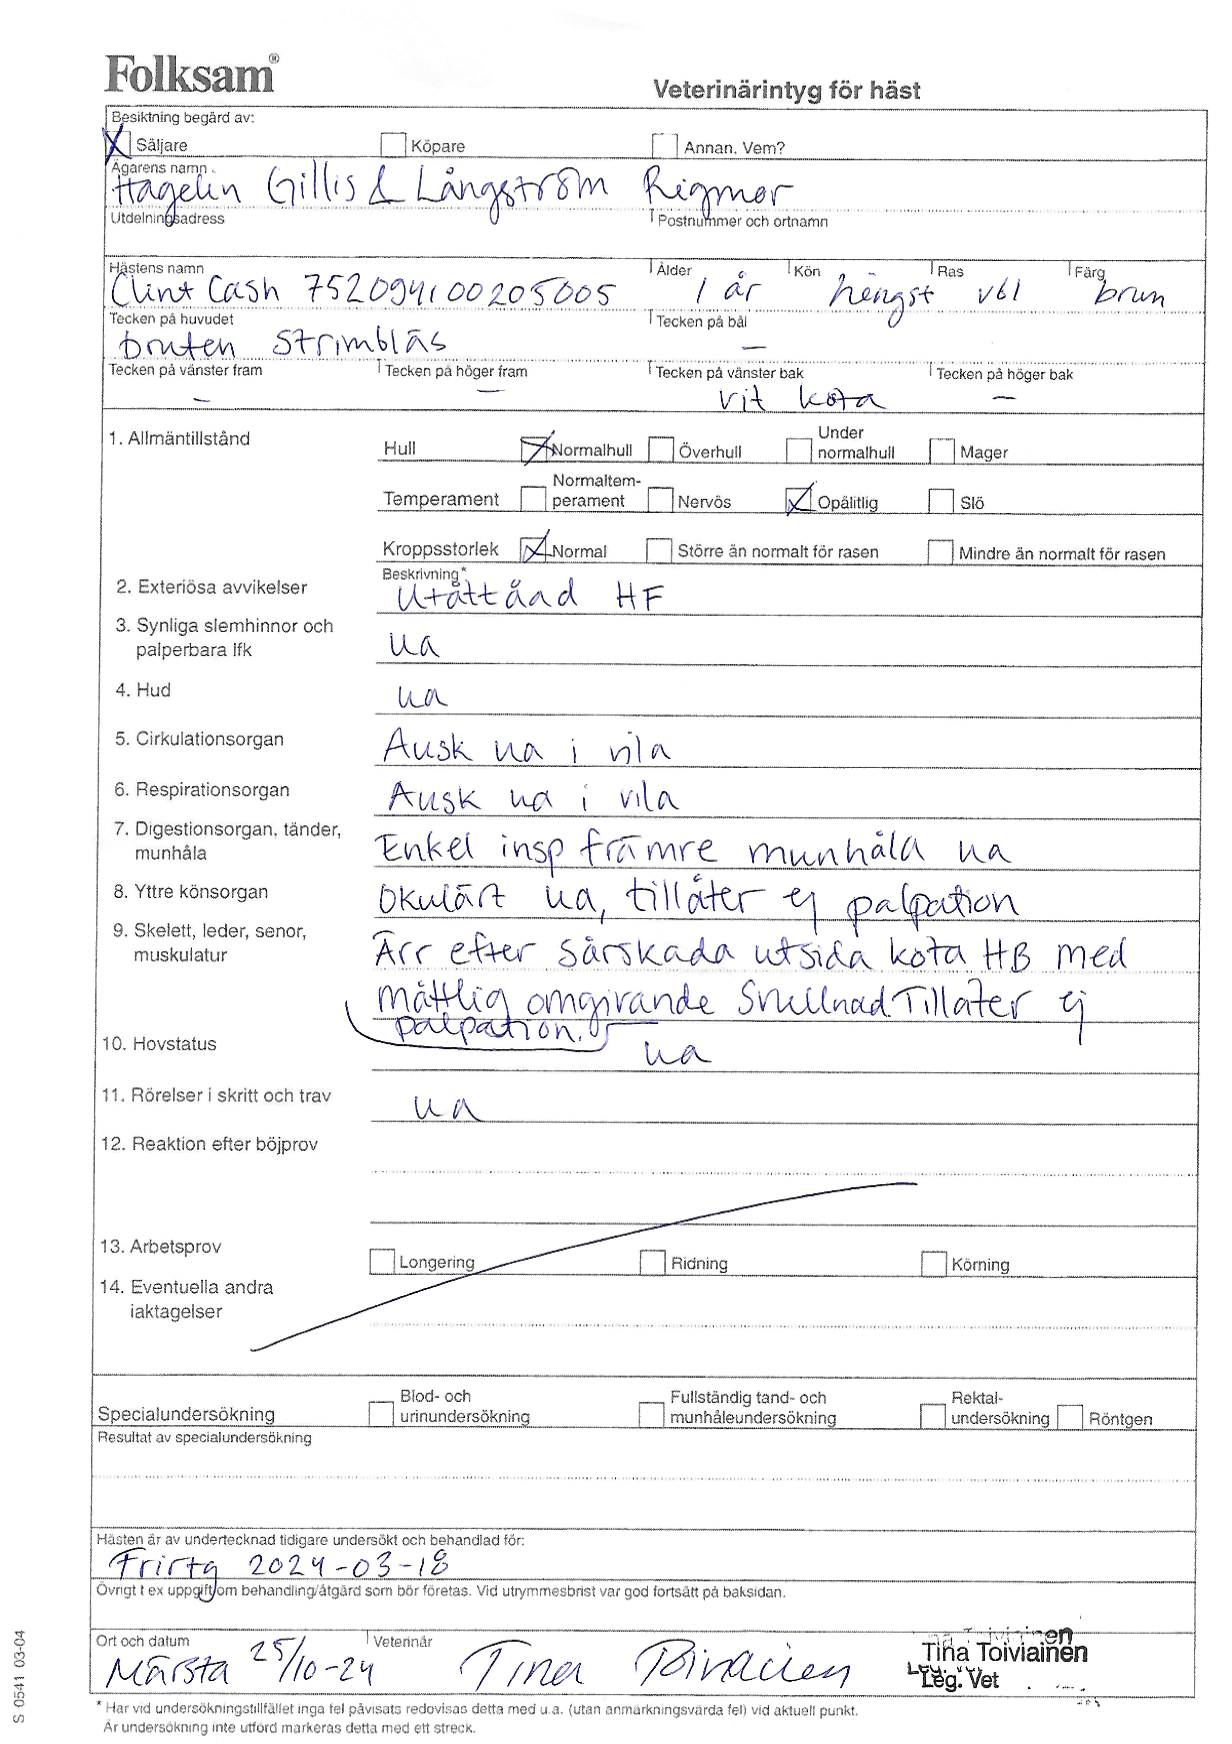 Folksam®
Veterinärintyg för häst
Besiktning begärd av:
X Säljare Köpare Annan. Vem?
Ägarens namn
Hagelin Gillis & Långström Rigmor
Utdelningsadress Postnummer och ortnamn
Hästens namn Ålder Kön Ras Färg
Clint Cash 752094100205005 1 år hingst vbl brun
Tecken på huvudet Tecken på bål
bruten strimbläs –
Tecken på vänster fram Tecken på höger fram Tecken på vänster bak Tecken på höger bak
– – vit kota –
1. Allmäntillstånd
Hull X Normalhull Överhull Under normalhull Mager
Temperament Normaltemperament Nervös X Opålitlig Slö
Kroppsstorlek X Normal Större än normalt för rasen Mindre än normalt för rasen
Beskrivning*
2. Exteriösa avvikelser Utåttåad HF
3. Synliga slemhinnor och
palperbara lfk ua
4. Hud ua
5. Cirkulationsorgan Ausk ua i vila
6. Respirationsorgan Ausk ua i vila
7. Digestionsorgan, tänder,
munhåla Enkel insp främre munhåla ua
8. Yttre könsorgan Okulärt ua, tillåter ej palpation
9. Skelett, leder, senor,
muskulatur Ärr efter sårskada utsida kota HB med
måttlig omgivande svullnad. Tillåter ej
palpation.
10. Hovstatus ua
11. Rörelser i skritt och trav ua
12. Reaktion efter böjprov
13. Arbetsprov Longering Ridning Körning
14. Eventuella andra
iaktagelser
Specialundersökning Blod- och urinundersökning Fullständig tand- och munhåleundersökning Rektalundersökning Röntgen
Resultat av specialundersökning
Hästen är av undertecknad tidigare undersökt och behandlad för:
Frirtg 2024-03-18
Övrigt t ex uppgift om behandling/åtgärd som bör företas. Vid utrymmesbrist var god fortsätt på baksidan.
Ort och datum Veterinär
Märsta 25/10-24 Tina Toiviainen
Tina Toiviainen
Leg. Vet
* Har vid undersökningstillfället inga fel påvisats redovisas detta med u.a. (utan anmärkningsvärda fel) vid aktuell punkt.
Är undersökning inte utförd markeras detta med ett streck.
S 0541 03-04